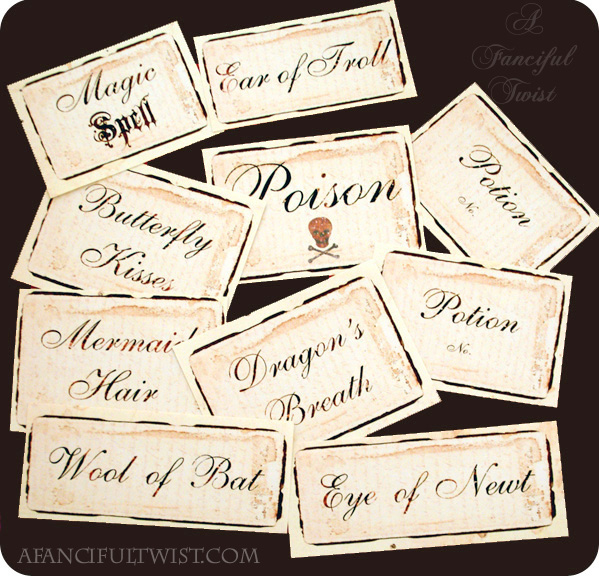 A
Fanciful
Twist
Magic
Spell
Ear of Troll
Poison
Potion
No.
Butterfly
Kisses
Mermaid
Hair
Dragon's
Breath
Potion
No.
Wool of Bat
Eye of Newt
AFANCIFULTWIST.COM